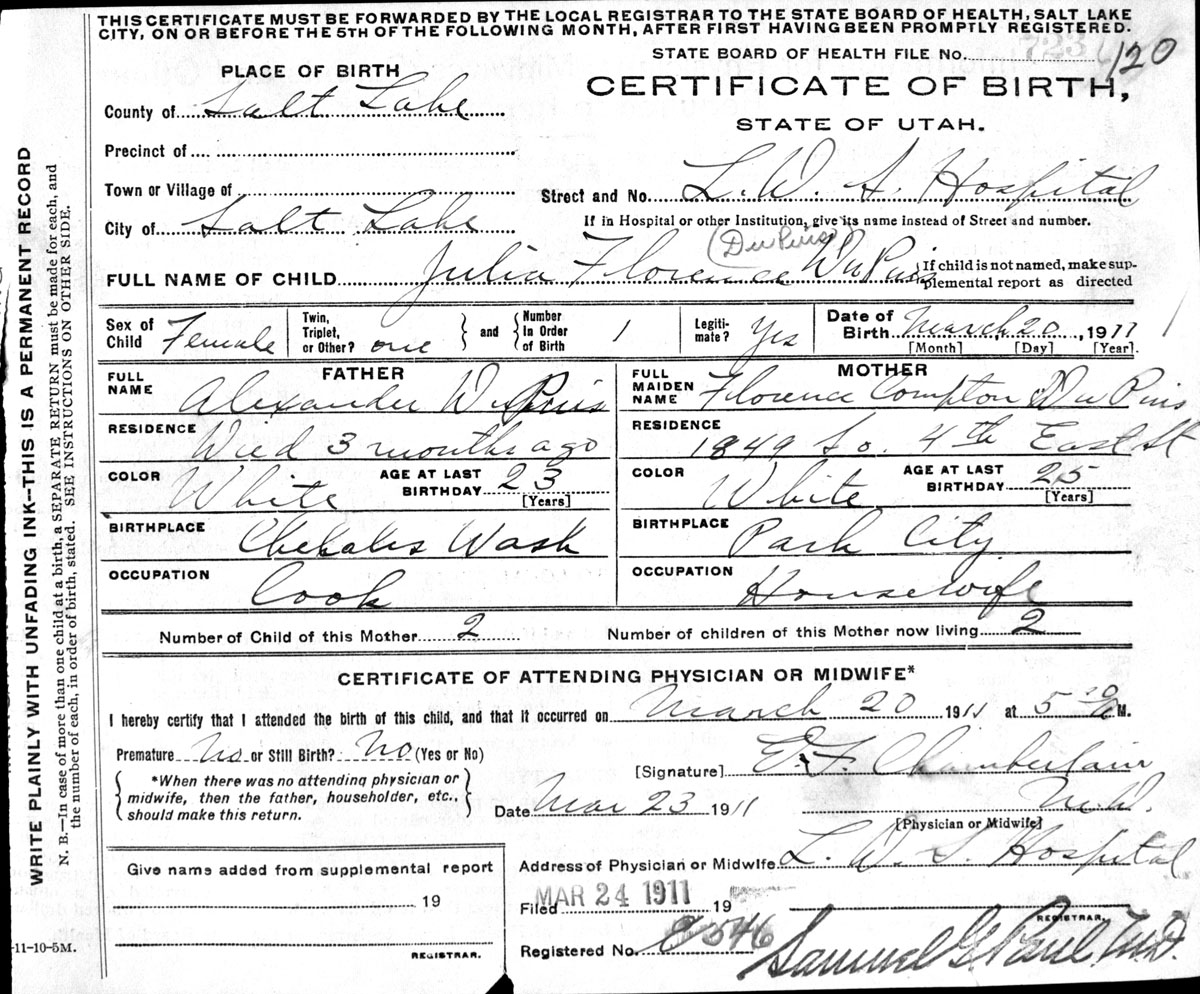 THIS CERTIFICATE MUST BE FORWARDED BY THE LOCAL REGISTRAR TO THE STATE BOARD OF HEALTH, SALT LAKE
CITY, ON OR BEFORE THE 5TH OF THE FOLLOWING MONTH, AFTER FIRST HAVING BEEN PROMPTLY REGISTERED.
STATE BOARD OF HEALTH FILE No. 120
PLACE OF BIRTH
CERTIFICATE OF BIRTH,
STATE OF UTAH.
County of Salt Lake
Precinct of
Town or Village of
Street and No. L. D. S. Hospital
City of Salt Lake
If in Hospital or other Institution, give its name instead of Street and number.
(Du Puis)
FULL NAME OF CHILD Julia Florence Du Puis
If child is not named, make sup-
plemental report as directed
Sex of Child Female
Twin, Triplet, or Other? one
and Number In Order of Birth 1
Legiti-mate? Yes
Date of Birth March 20, 1911
[Month] [Day] [Year].
FATHER
FULL NAME Alexander Du Puis
RESIDENCE Died 3 months ago
COLOR White
AGE AT LAST BIRTHDAY 23
[Years]
BIRTHPLACE Chehalis Wash
OCCUPATION Cook
MOTHER
FULL MAIDEN NAME Florence Compton Du Puis
RESIDENCE 1849 So. 4th East St
COLOR White
AGE AT LAST BIRTHDAY 25
[Years]
BIRTHPLACE Park City
OCCUPATION Housewife
Number of Child of this Mother 2
Number of children of this Mother now living 2
CERTIFICATE OF ATTENDING PHYSICIAN OR MIDWIFE*
I hereby certify that I attended the birth of this child, and that it occurred on March 20 1911 at 5 M.
Premature No or Still Birth? No (Yes or No)
*When there was no attending physician or
midwife, then the father, householder, etc.,
should make this return.
[Signature] E. F. Chamberlain
M.D.
Date Mar 23 1911
[Physician or Midwife]
Address of Physician or Midwife L. D. S. Hospital
Give name added from supplemental report
19
REGISTRAR.
Filed MAR 24 1911 19
REGISTRAR.
Registered No. 546
Samuel G. Paul M.D.
-11-10-5M.
WRITE PLAINLY WITH UNFADING INK--THIS IS A PERMANENT RECORD
N. B.--In case of more than one child at a birth, a SEPARATE RETURN must be made for each, and
the number of each, in order of birth, stated. SEE INSTRUCTIONS ON OTHER SIDE.